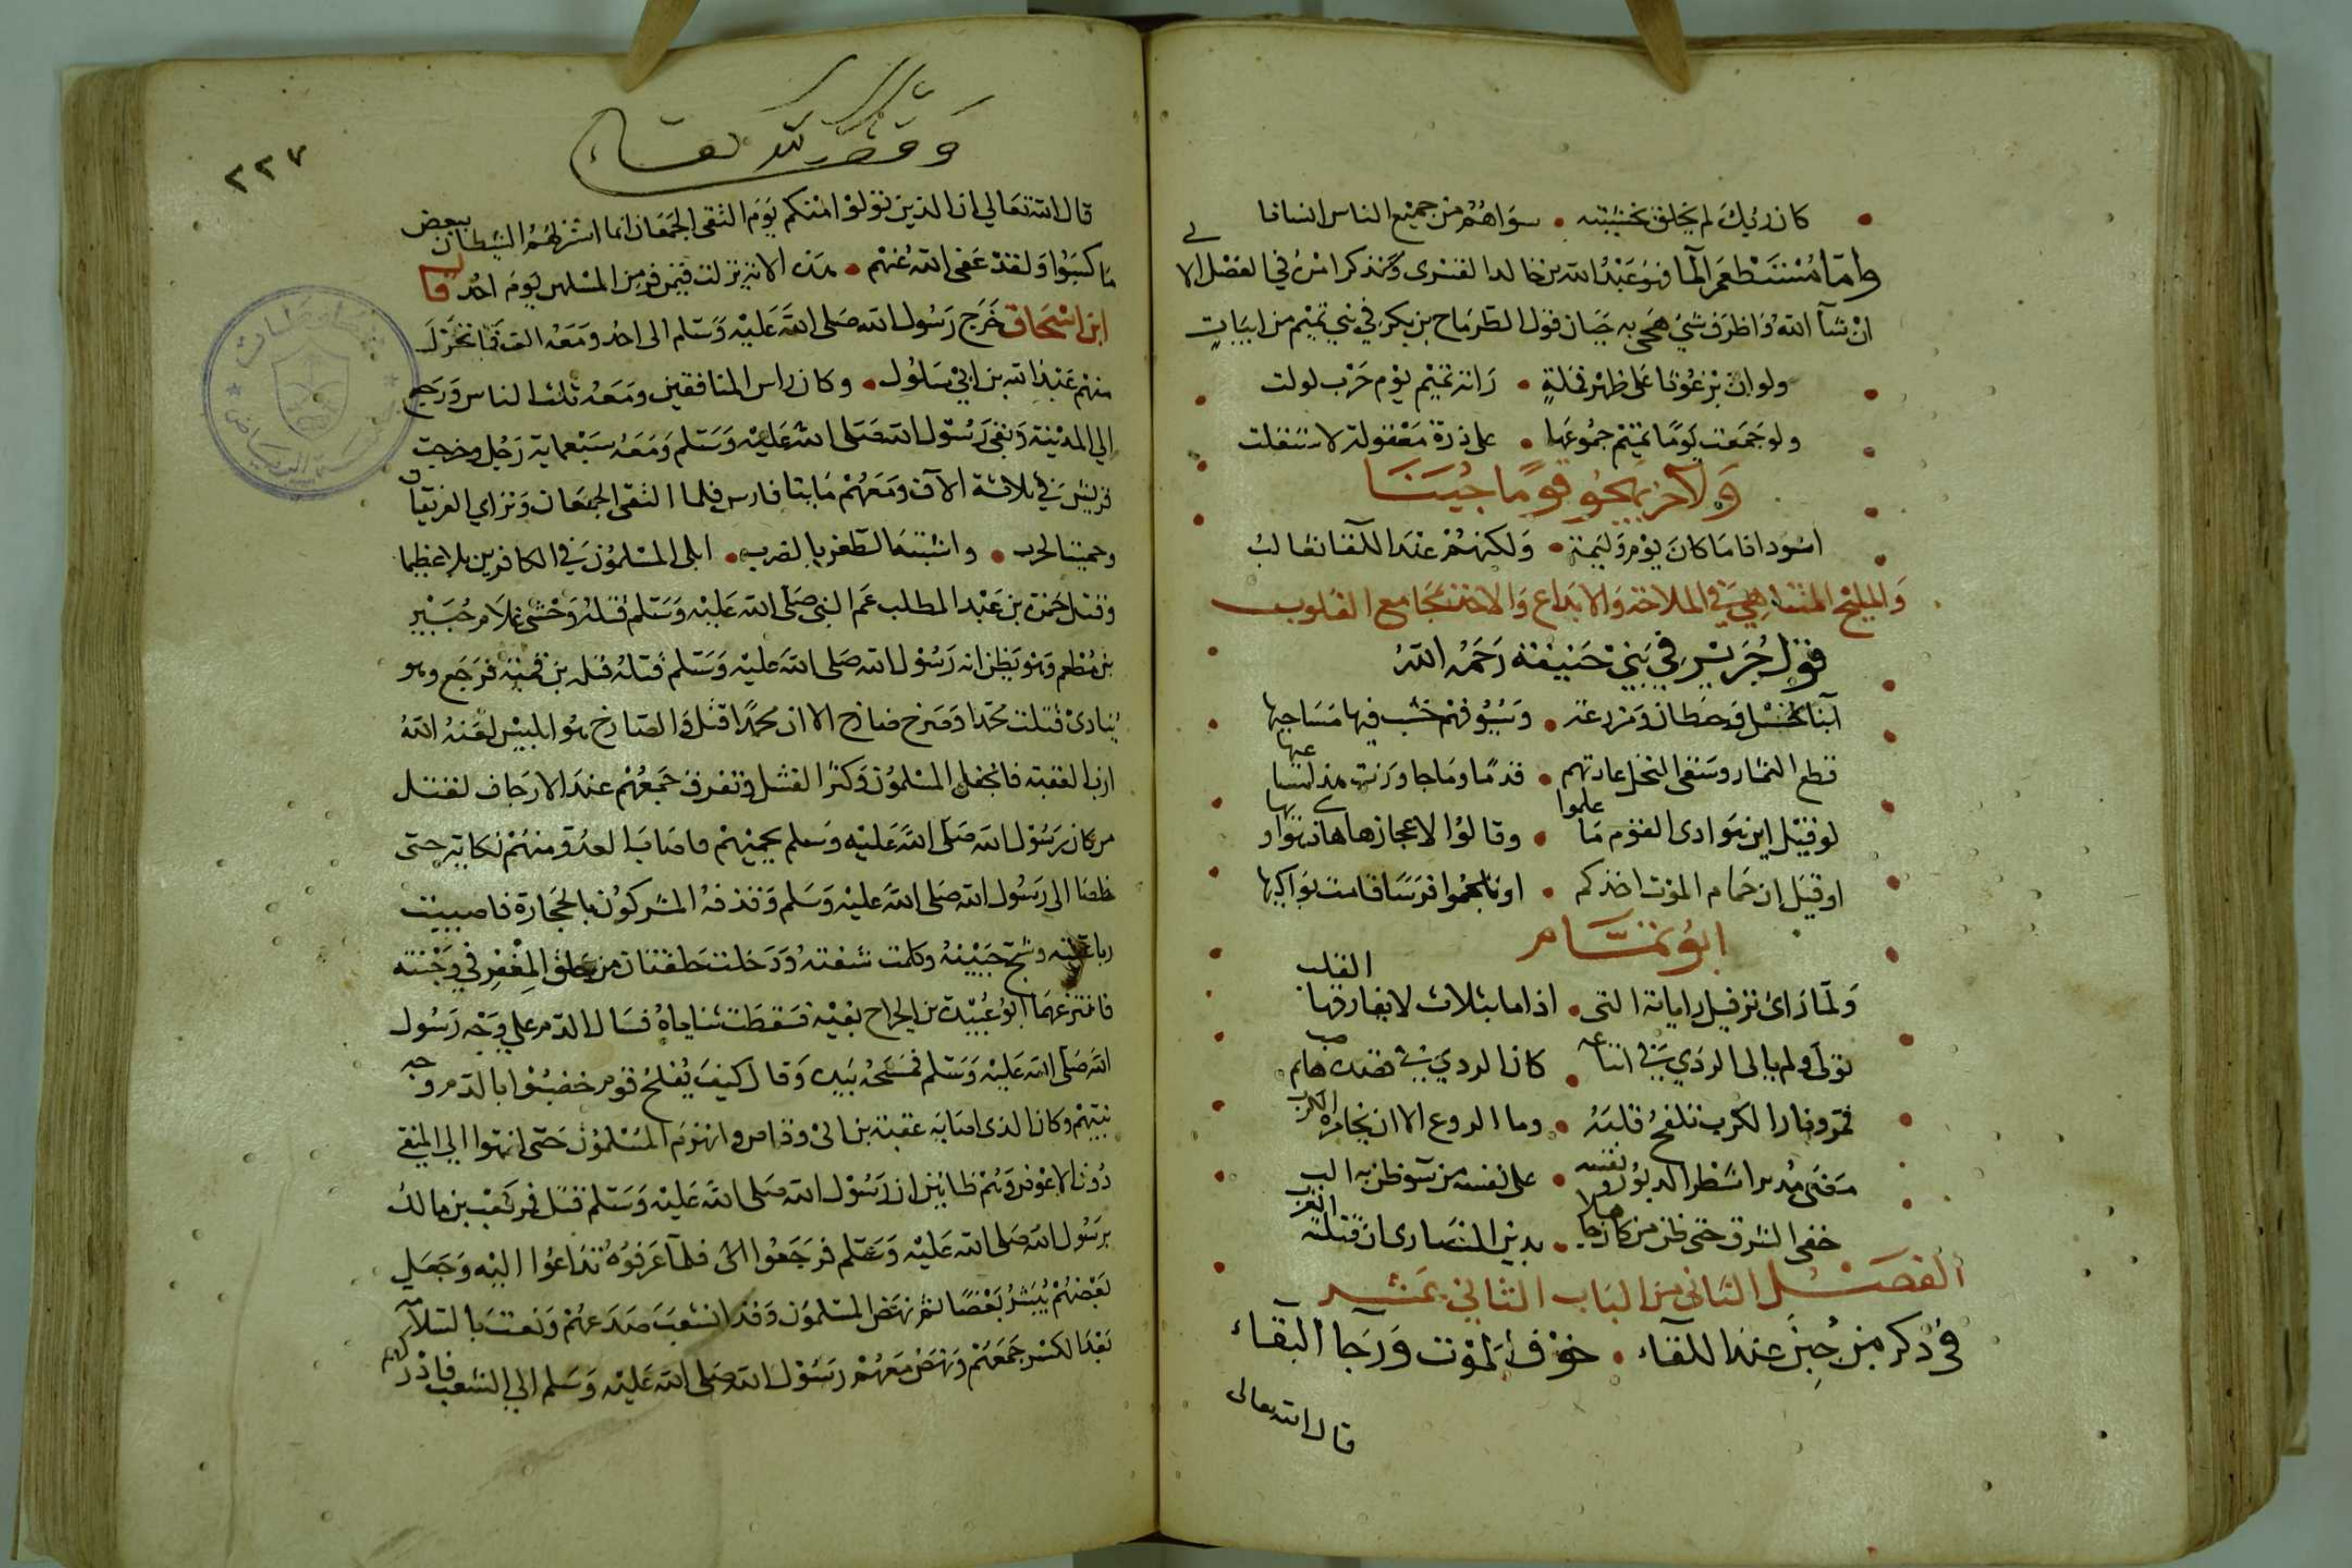 كان ربك لم يخلق لخشيته • سواهم من جميع الناس انسانا
واما مستطعم الما فهو عبد الله بن خالد القسري وسنذكر امره في الفصل الا لي
ان شآ الله واظرف شي هجى به جبان قول الطرماح بن بكر في بني تميم من ابيات
ولو ان برغوثا على ظهر قملة • راته تميم يوم حرب لولت
ولو جمعت يوما تميم جموعها • على ذرة معقولة لاستقلت
ولآخر يهجو قوما جبنا
اسود اذا ما كان يوم وليمة • ولكنهم عند اللقا ثعالب
والمليح المتناهي في الملاحة والابداع والاخذ بمجامع القلوب
قول جرير في بني حنيفة رحمه الله
ابنا نخل وحيطان ومزرعة • وسيوفهم خشب فيها مساحيها
قطع الثمار وسقى النخل عادتهم • قدما وما جاوزت هذا مساعيها
لو قيل اين هوادى القوم ما علموا • وقالوا لاعجازها هذي هواديها
او قيل ان حمام الموت اخذكم • او تلجموا فرسا قامت بواكيها
ابو تمام
ولما راى توفيل راياتك التي • اذا ما اتلأبت لا يفارقها القلب
تولى ولم يال الردي في اتباعه • كان الردي في قصده هايم صب
غزوفار الكرب تلفح قلبه • وما الروع الا ان يخامره الكرب
مضى مدبرا شطر الدبور ونفسه • على نفسه من سو ظن به الب
جفى الشرق حتى ظن من كان جاهلا • بدين النصارى ان قبلته الغرب
الفصل الثاني من الباب الثاني عشر
في ذكر من جبن عند اللقاء • خوف الموت ورجا البقاء
قال الله تعالى
٢٢٧
وقف لله تعالى
قال الله تعالى ان الذين تولوا منكم يوم التقى الجمعان انما استزلهم الشيطان ببعض
ما كسبوا ولقد عفى الله عنهم • هذه الاية نزلت فيمن فر من المسلمين يوم احد قال
ابن اسحاق خرج رسول الله صلى الله عليه وسلم الى احد ومعه الف فانخزل
منهم عبد الله بن ابي سلول • وكان راس المنافقين ومعه ثلث الناس ورجع
الي المدينة وبقى رسول الله صلى الله عليه وسلم ومعه سبعماية رجل وخرجت
قريش في ثلاثة الآف ومعهم مايتا فارس فلما التقى الجمعان وتراي الفريقان
وحميت الحرب • واشتبك الطعن بالضرب • ابلى المسلمون في الكافرين بلا عظيما
وقتل حمزة بن عبد المطلب عم النبي صلى الله عليه وسلم قتله وحشى غلام جبير
بن مطعم وهو يظن انه رسول الله صلى الله عليه وسلم قتله بن قمئة فرجع وهو
ينادى قتلت محمدا وصرخ صارخ الا ان محمدا قتل والصارخ هو ابليس لعنه الله
ازب العقبة فانجفل المسلمون وكثر القتل وتفرق جمعهم عند الارجاف لقتل
من كان رسول الله صلى الله عليه وسلم يحميهم فاصاب العدو منهم نكاية حتى
خلصا الى رسول الله صلى الله عليه وسلم وقذفه المشركون بالحجارة فاصيبت
رباعيته وشج جبينه وكلمت شفته ودخلت حلقتان من حلق المغفر في وجنته
فانتزعهما ابو عبيدة بن الجراح بفيه فسقطت ثناياه فسال الدم على وجه رسول
الله صلى الله عليه وسلم فمسحه بيده وقال كيف يفلح قوم خضبوا بالدم وجه
نبيهم وكان الذى اصابه عقبة بن ابى وقاص وانهزم المسلمون حتى انتهوا الي المنقى
دون الاعوص وهم ظانين ان رسول الله صلى الله عليه وسلم قتل فمر كعب بن مالك
برسول الله صلى الله عليه وسلم فرجعوا الى فلما عرفوه تداعوا اليه وجعل
بعضهم يبشر بعضا ثم نهض المسلمون وقد انشعب صدعهم ونعت بالسلامة
بعد الكسر جمعهم ونهض معهم رسول الله صلى الله عليه وسلم الي الشعب فادركهم